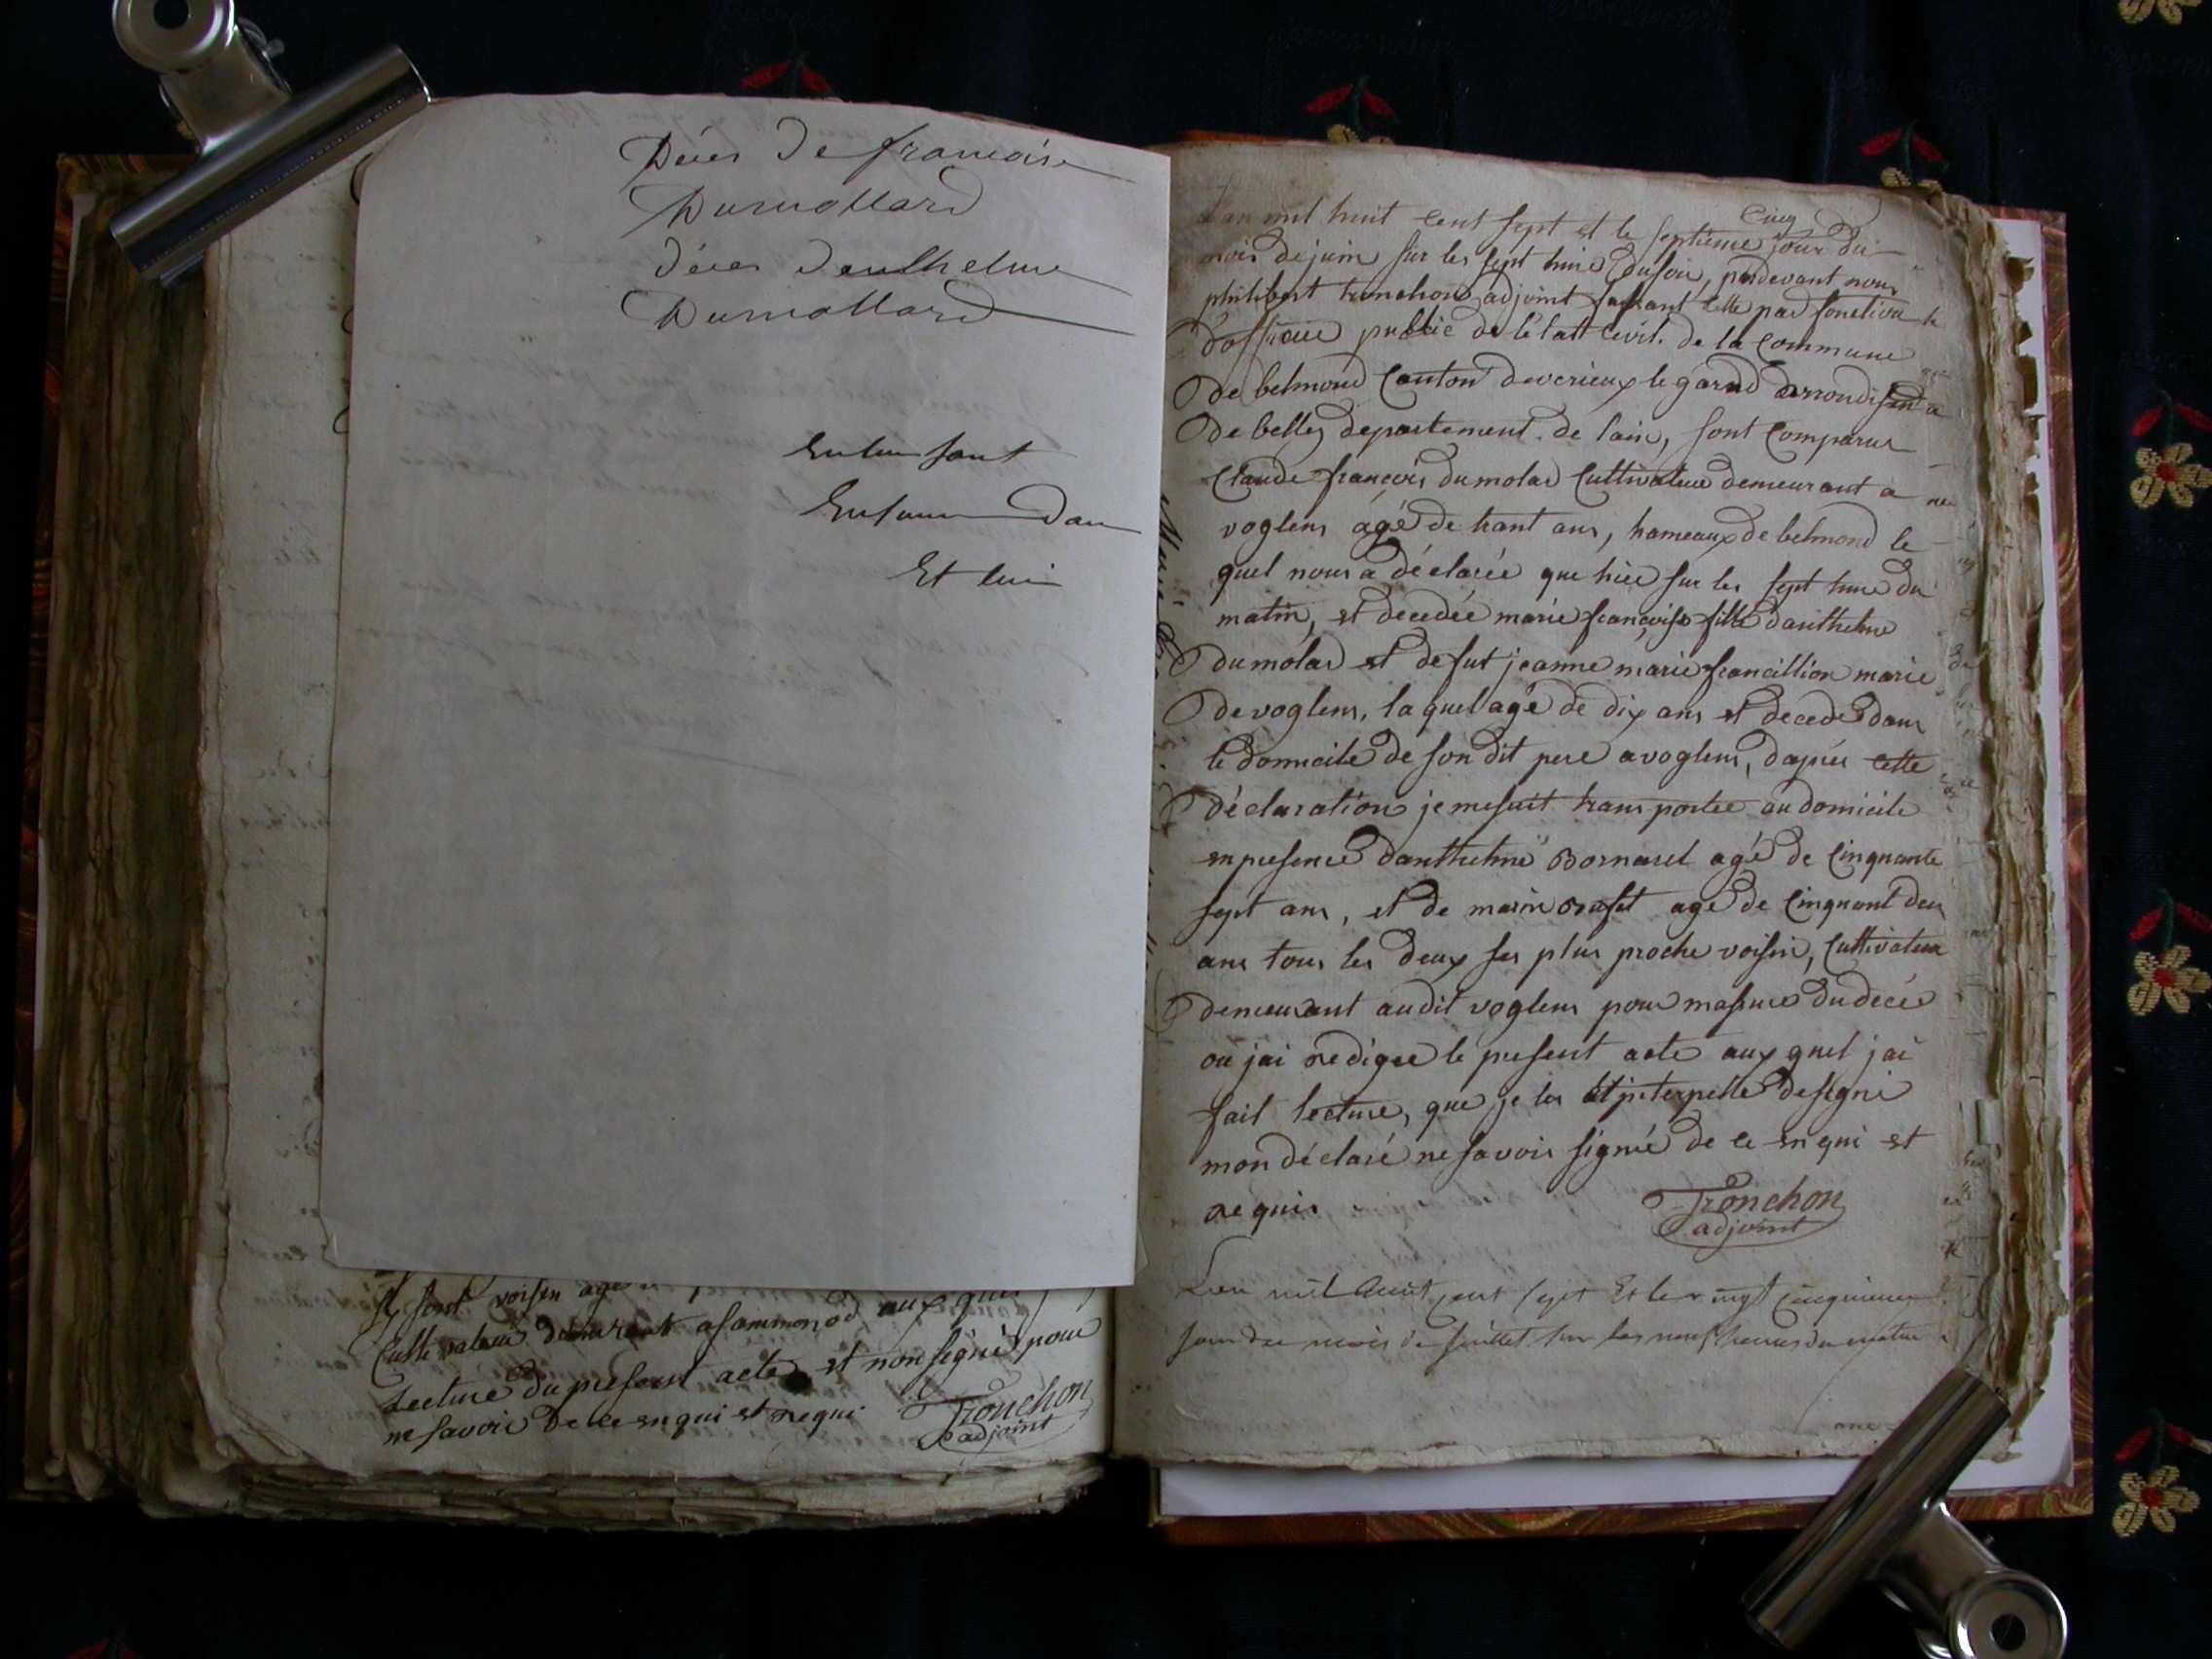 Déces de francoise
Dumollard
déces danthelme
Dumollard
Et lui
si sont voisin agé
Cultivateur demeurant a sammonod aux quel
Lecture du present acte et non signé pour
ne savoir de ce enqui et requi
Tronchon
adjoint
L'an mil huit cent sept et le septieme jour du
Cinq
mois de juin sur les sept hure du soir, pardevant nous
philibert tronchon adjoint faisant cette par fonction
d'officier public de l'etatt civil de la Commune
De belmond Canton de verieux le garand arrondisent
De belley departement de lain, sont Comparus
Claude françois dumolar Cultivateur demeurant a
voglens agé de trant ans, hameaux de belmond le
quel nous a déclarée que hier sur les sept hure du
matin, et decedée marie françoise fille danthelme
Dumolar et defut jeanne marie francillion marie
De voglens, la quel agé de dix ans et decedé dans
le domicile de son dit pere a voglens, dapres cette
Déclaration je me suit transportee au domicile
en presence danthelme Bornarel agé de Cinquante
sept ans, et de marin Bruset agé de Cinquant deu
ans tous les deux ses plus proche voisin, Cultivateur
Demeurant audit voglens pour massure du decés
ou jai redigee le present acte aux quel jai
fait lecture, que je les et interpelle de signé
mon déclaré ne savoir signé de ce enqui et
requis
Tronchon
adjoint
L'an mil huit cent sept Et le vingt cinquieme
jour du mois de juillet sur les neuf heures du matin